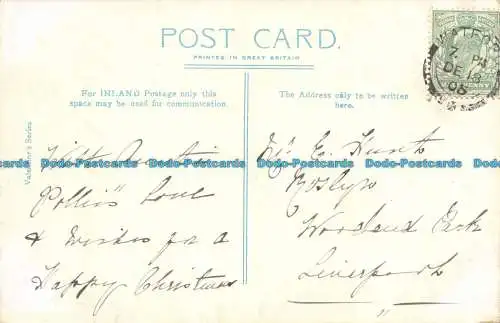 POST CARD.
PRINTED IN GREAT BRITAIN
For INLAND Postage only this
space may be used for communication.
The Address only to be written
here.
Valentine's Series
With Auntie
Pollie's Love
& Wishes for a
Happy Christmas
E. Hunt
Woodland Park
Liverpool
WATFORD
7 PM
DE
PENNY
Dodo-Postcards Dodo-Postcards Dodo-Postcards Dodo-Postcards Dodo-Postcards